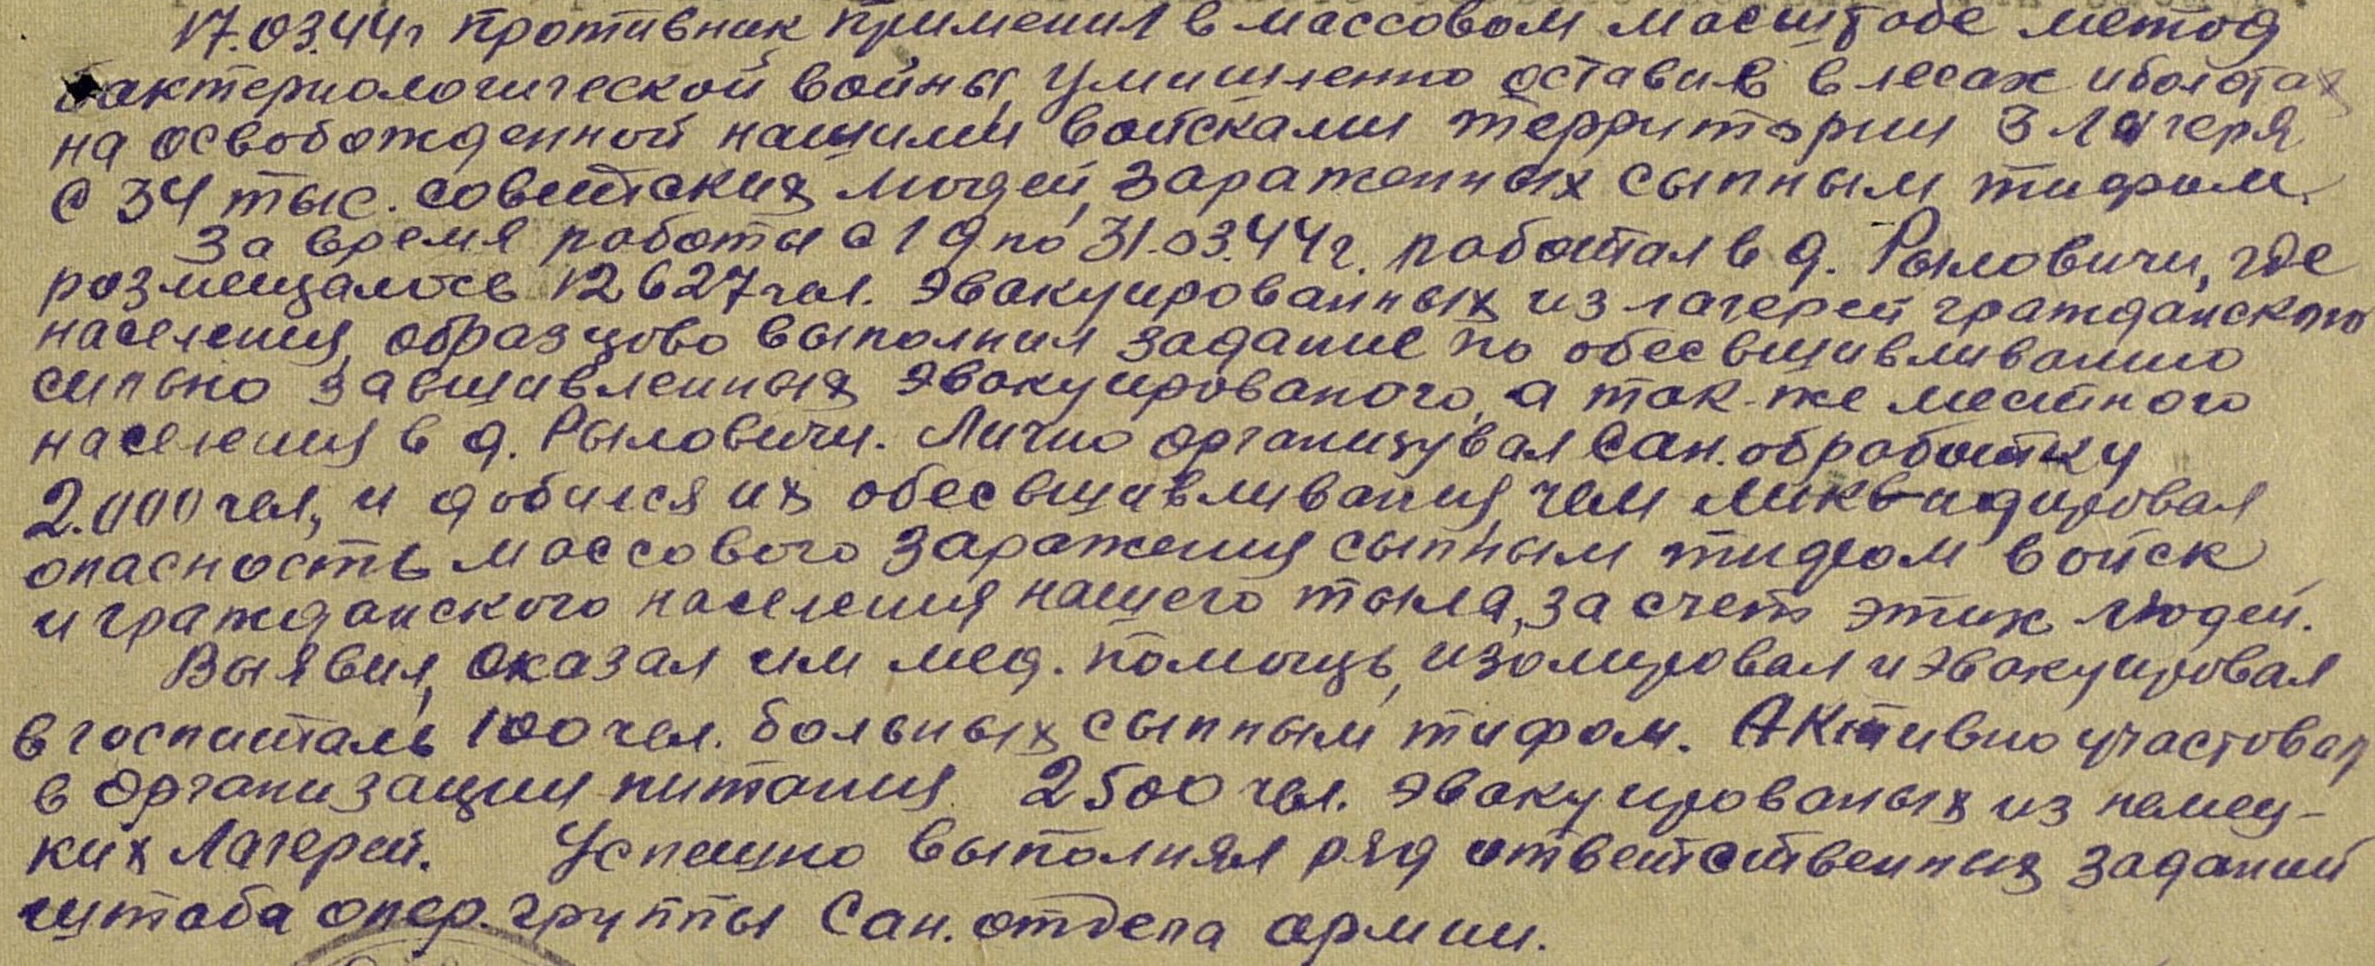 17.03.44г противник применил в массовом масштабе метод
бактериологической войны, умышленно оставив в лесах и болотах
на освобожденной нашими войсками территории 3 лагеря
с 34 тыс. советских людей, зараженных сыпным тифом.
За время работы с 19 по 31.03.44г. работал в д. Рыловичи, где
размещалось 12627 чел. эвакуированных из лагерей гражданского
населения, образцово выполнил задание по обесвшивливанию
сильно завшивленных эвакуированого, а так-же местного
населения в д. Рыловичи. Лично организувал сан. обработку
2.000 чел, и добился их обесвшивливания, чем ликвидировал
опасность массового заражения сыпным тифом войск
и гражданского населения нашего тыла, за счет этих людей.
Выявил, оказал им мед. помощь, изолировал и эвакуировал
в госпиталь 100 чел. больных сыпным тифом. Активно участвовал
в организации питания 2500 чел. эвакуированых из немец-
ких лагерей. Успешно выполнял ряд ответственных заданий
штаба опер. группы Сан. отдела армии.